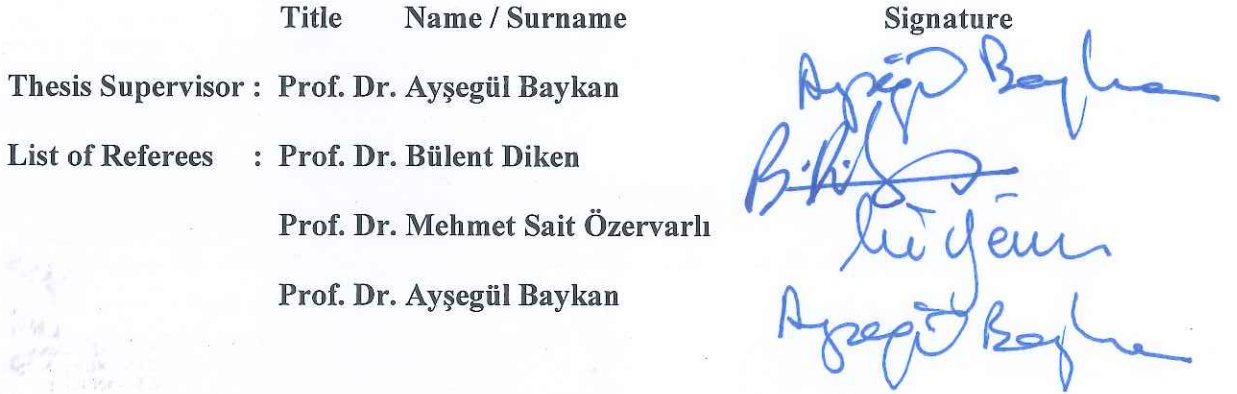 Title Name / Surname Signature
Thesis Supervisor : Prof. Dr. Ayşegül Baykan Ayşegül Baykan
List of Referees : Prof. Dr. Bülent Diken
Prof. Dr. Mehmet Sait Özervarlı
Prof. Dr. Ayşegül Baykan Ayşegül Baykan